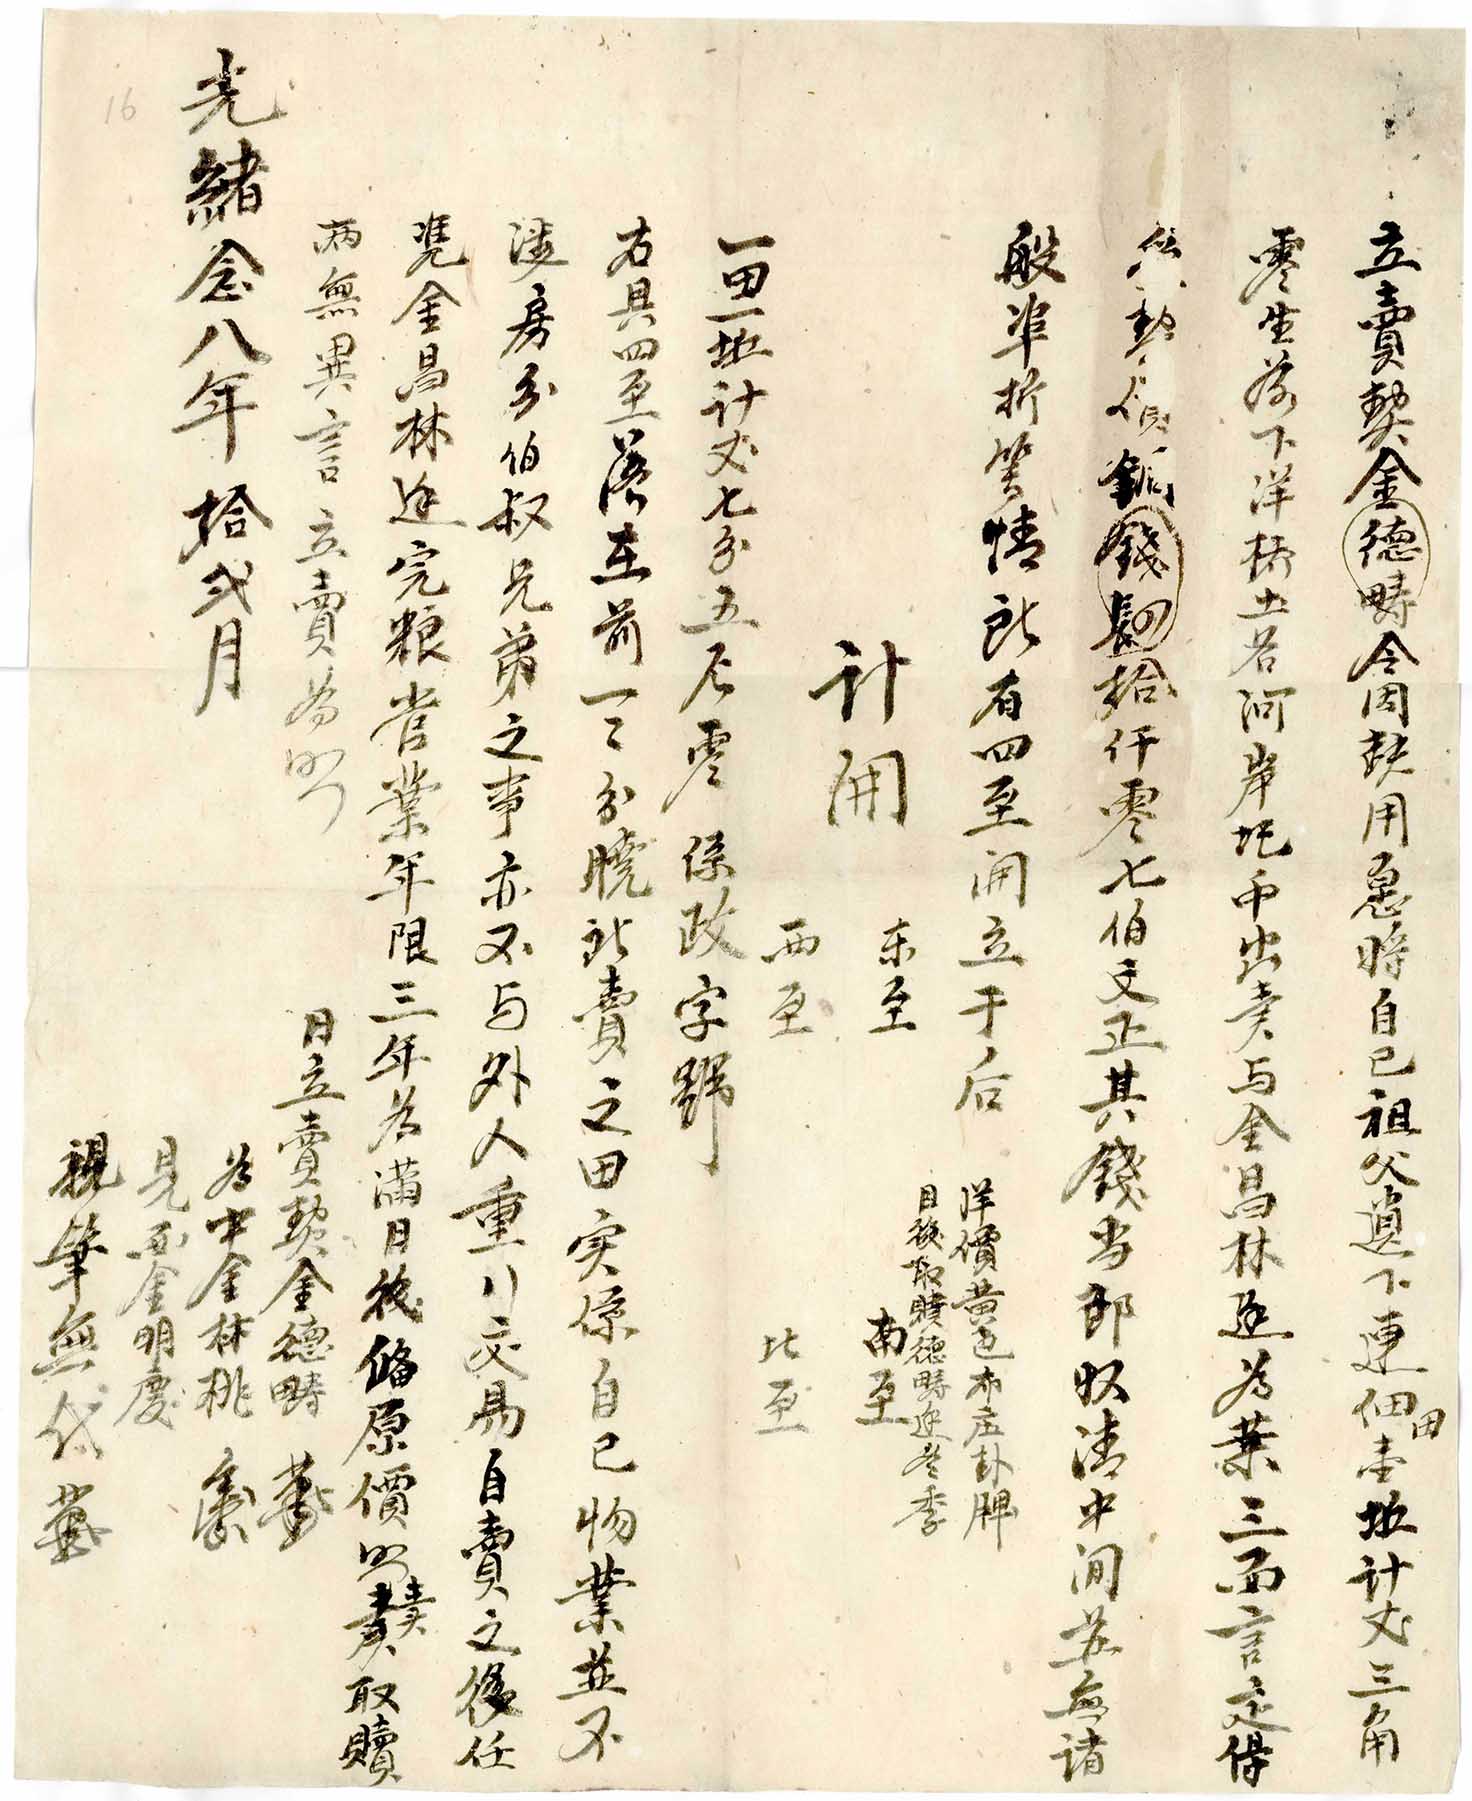 立賣契金德疇今因缺用急將自己祖父遺下連佃田壹坵計丈三角
零坐落下洋橋土名河岸圪帀出賣与金昌林迬為業三面言定得
價銅錢肆拾仟零七伯文正其錢当即收清中间並無諸
般準折等情所有四至開立于后
洋價黃色布庄卦牌
日後取贖德疇迬冬季
計開
東至
南至
西至
北至
一田一坵計丈七分五厘零係改字號
右具四至落在前一一分曉所賣之田实係自己物業並不
涉房分伯叔兄弟之事亦不与外人重行交易自賣之後任
凭金昌林迬完粮管業年限三年為滿日後俻原價照契取贖
兩無異言立賣為照
光緒念八年拾弍月
日立賣契金德疇
為中金林桃
見面金明慶
親筆無代
16